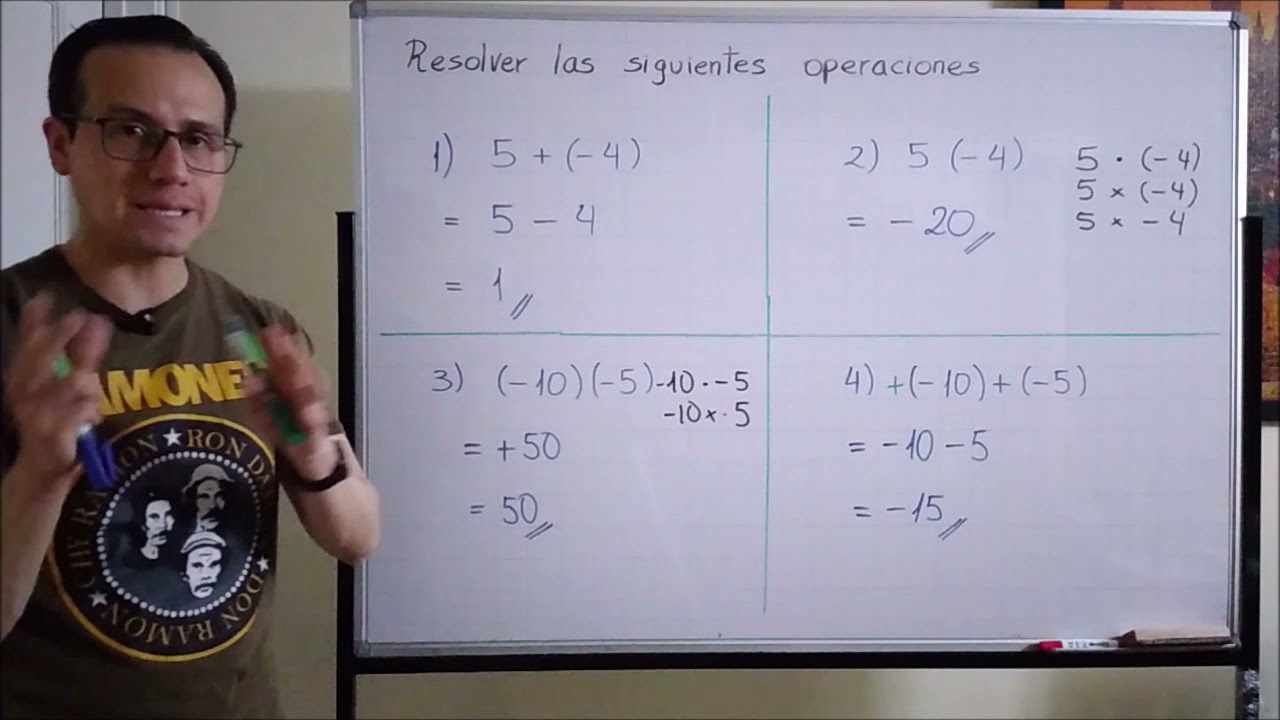 Resolver las siguientes operaciones
1) 5 + (-4)
= 5 - 4
= 1
2) 5 (-4)
= -20
5 · (-4)
5 × (-4)
5 × - 4
3) (-10)(-5)
= +50
= 50
-10 · -5
-10 × - 5
4) +(-10)+(-5)
= -10 - 5
= -15
AMONE
RON DA
DON RAMON